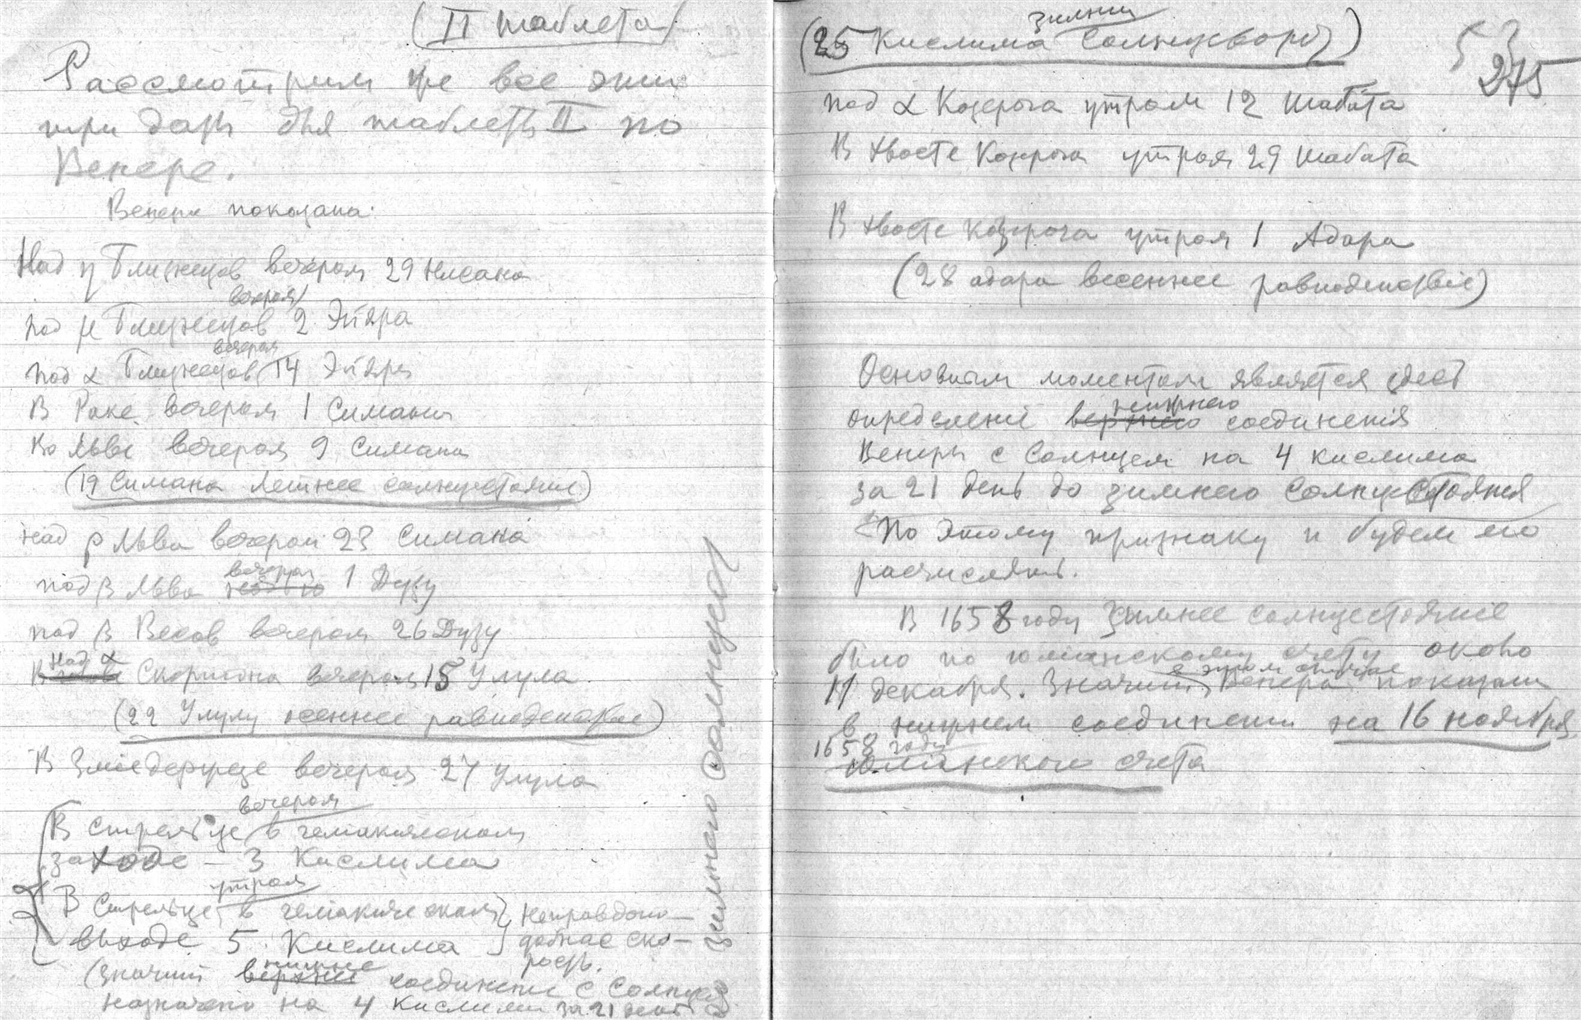 (II таблета)
Рассмотрим же все эти
три даты для таблеты II по
Венере.
Венера показана:
Над η Близнецов вечером 29 Нисана
под μ Близнецов вечером 2 Эйяра
под α Близнецов вечером 14 Эйяра
В Раке вечером 1 Симана
Во Льве вечером 9 Симана
(19 Симана Летнее солнцестояние)
над ρ Льва вечером 23 Симана
под β Льва вечером 1 Дузу
под β Весов вечером 26 Дузу
над α Скорпиона вечером 15 Улула
(22 Улулу осеннее равноденствие)
В Змиедержце вечером 27 Улула
В Стрельце вечером в гелиакическом
заходе – 3 Кислима
В Стрельце утром в гелиакическом
выходе 5 Кислима
неправдопо-
добная ско-
рость.
(значит нижнее соединение с Солнцем
назначено на 4 Кислима за 21 день
до зимнего солнцест
(25 Кислима зимний Солнцеворот)
53
275
под α Козерога утром 12 Шабата
В хвосте Козерога утром 29 Шабата
В хвосте Козерога утром 1 Адара
(28 адара весеннее равноденствие)
Основным моментом является здесь
определение нижнего соединения
Венеры с Солнцем на 4 кислима
за 21 день до зимнего Солнцестояния
По этому признаку и будем его
расчислять.
В 1658 году Зимнее солнцестояние
было по юлианскому счету около
11 декабря. Значит, в этом случае Венера показана
в нижнем соединении на 16 ноября
1658 году
юлианского счета